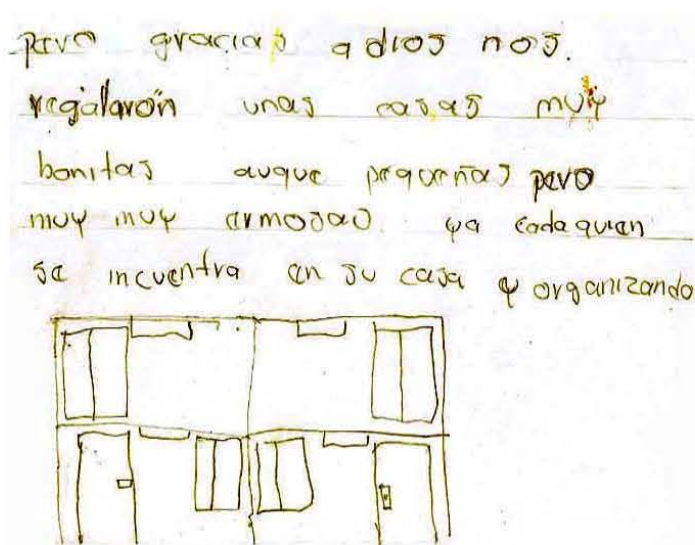 pero gracias a dios nos.
regalarón unas casas muy
bonitas auque pequeñas pero
muy muy ermosas. ya cada quien
se incuentra en su casa y organizando